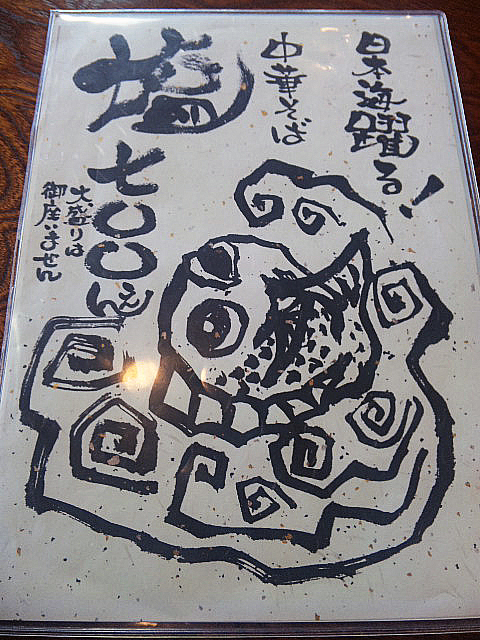 日本海躍る!
中華そば
塩
七〇〇えん
大盛りは
御座いません